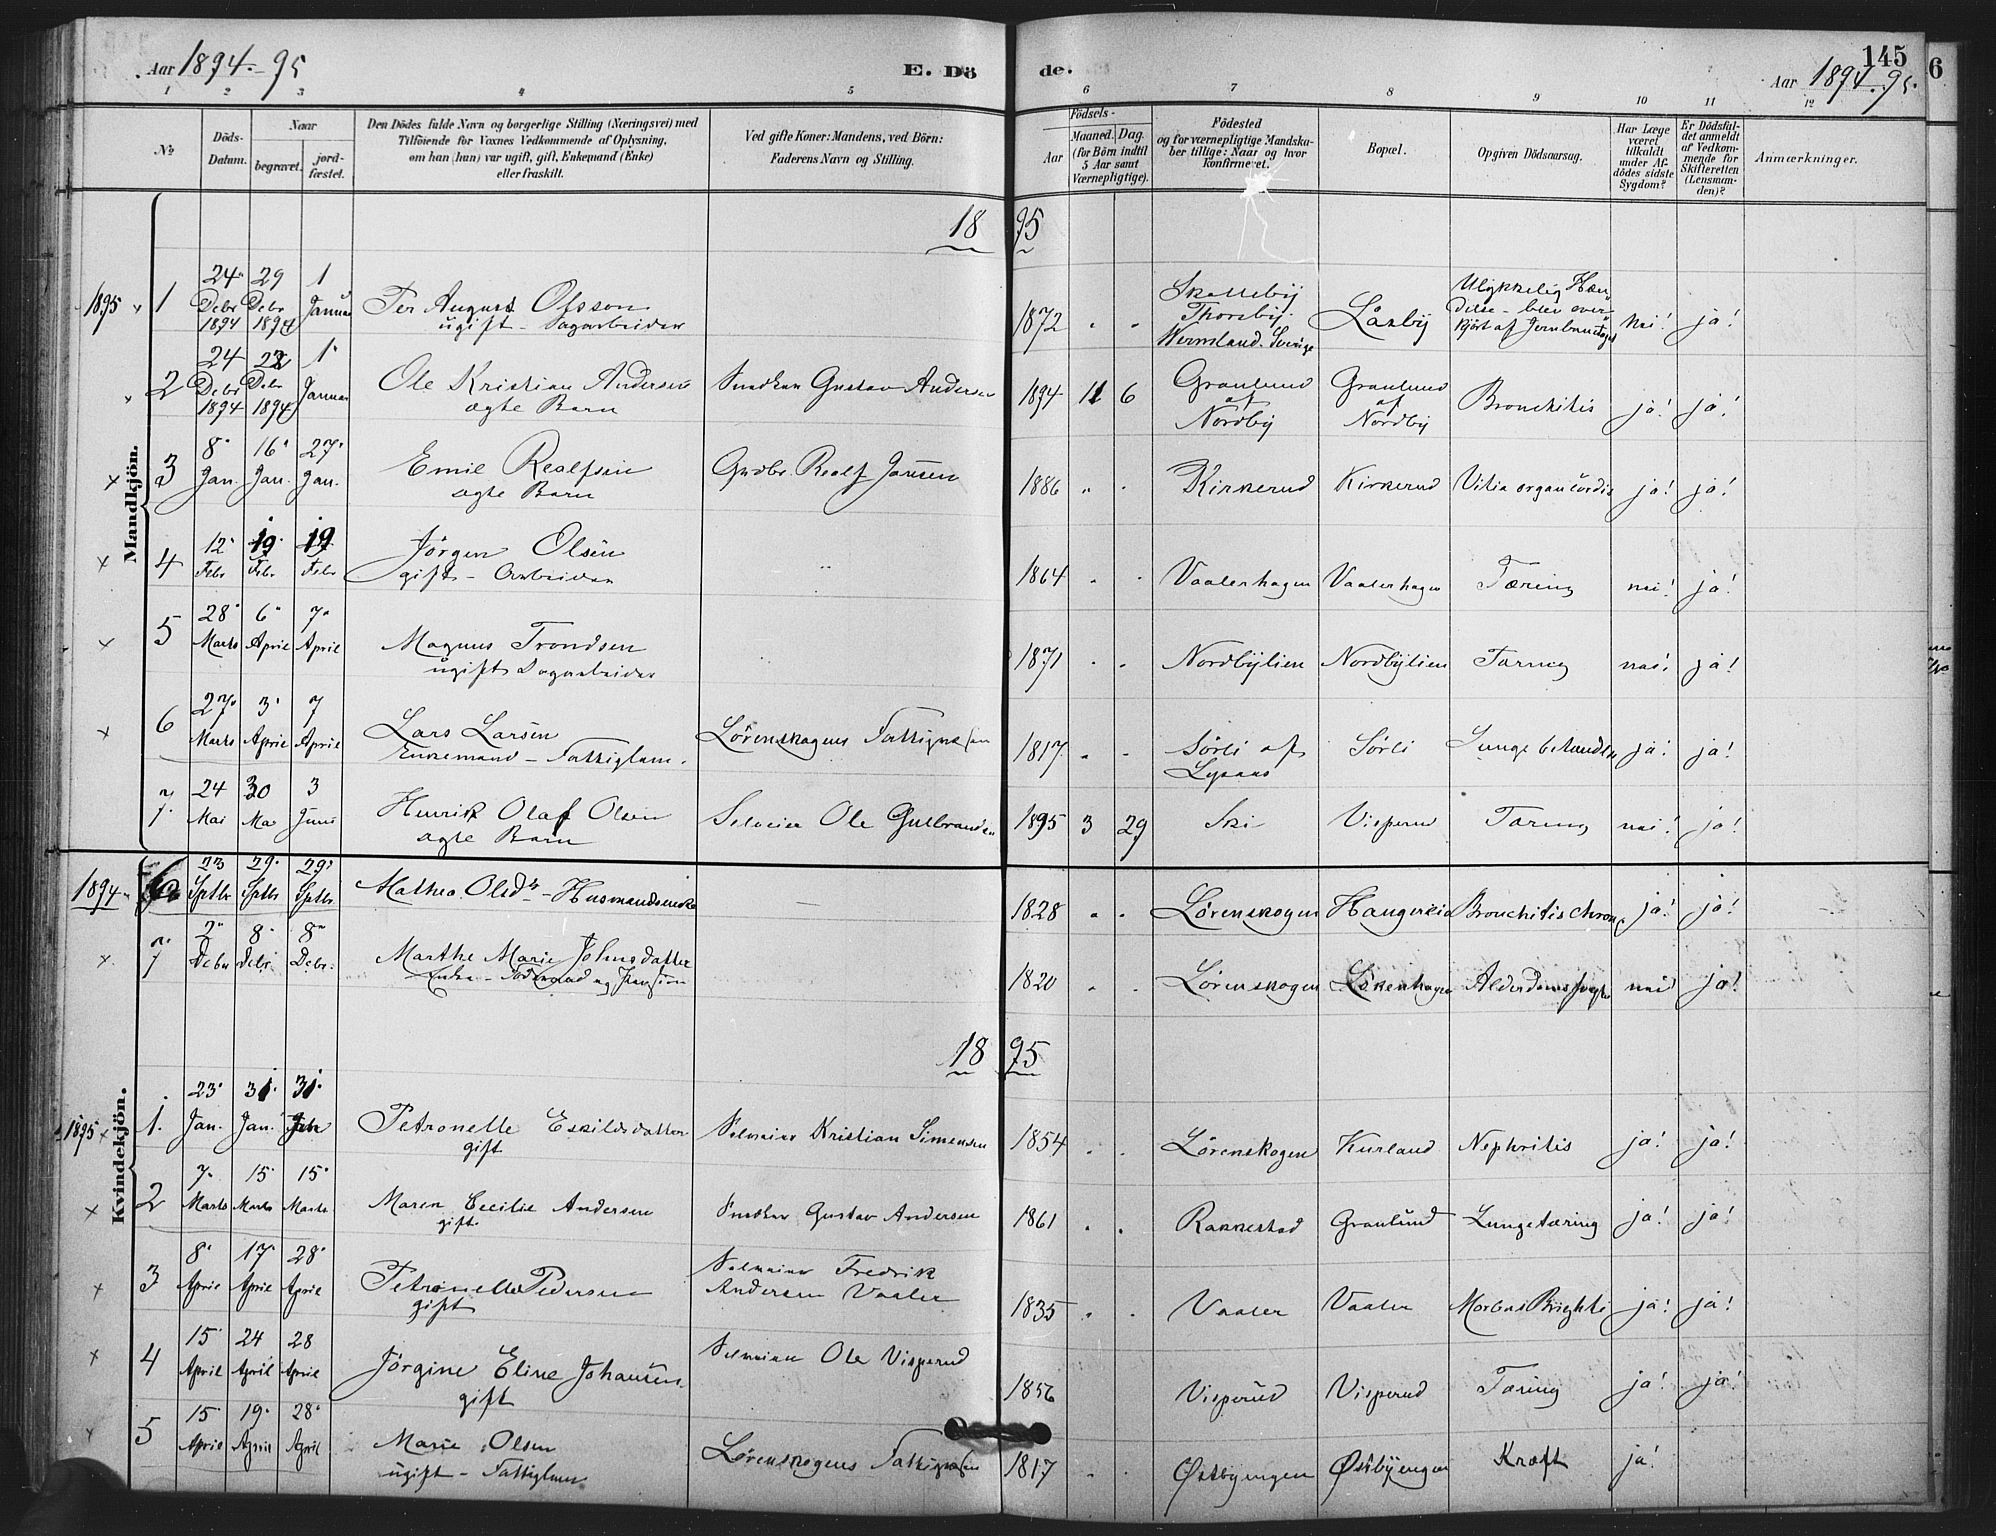 Aar 1894-95
E. Dö
de.
145
Aar 1894-95.
6
1 2 3 4 5 6 7 8 9 10 11 12
No
Döds-Datum.
Naar
begravet.
jord-fæstet.
Den Dödes fulde Navn og borgerlige Stilling (Næringsvei) med
Tilföiende for Voxnes Vedkommende af Oplysning,
om han (hun) var ugift, gift, Enkemand (Enke)
eller fraskilt.
Ved gifte Koner: Mandens, ved Börn:
Faderens Navn og Stilling.
Födsels-
Aar
Maaned. Dag.
(for Börn indtil
5 Aar samt
Værnepligtige).
Födested
og for værnepligtige Mandska-
ber tillige: Naar og hvor
konfirmeret.
Bopæl.
Opgiven Dödsaarsag.
Har Læge
været
tilkaldt
under Af-
dödes sidste
Sygdom?
Er Dödsfal-
det anmeldt
af Vedkom-
mende for
Skifteretten
(Lensman-
den)?
Anmærkninger.
Mandkjön.
1895
1895 1 24 Debr 1894 29 Debr 1894 1 Januar Per August Olsson 1872 Låxby nei! ja!
ugift - Dagarbeider Thorsby. Wermland. Sverige
Ulykkelig Hæn-
delse - blev over-
kjört af Jernbanetoget
2 24 Debr 1894 Debr 1894 1 Januar Ole Kristian Andersen Snedker Gustav Andersen 1894 11 6 Granlund af Nordby Granlund af Nordby Bronchitis ja! ja!
ægte Barn
3 8 Jan. 16 Jan. 27 Jan. Emil Realfsen Gaardbr Realf Jansen 1886 Kirkerud Kirkerud Vitia organ cordis ja! ja!
ægte Barn
4 12 Febr 19 Febr 19 Febr Jörgen Olsen 1864 Vaalerhagen Vaalerhagen Tæring nei! ja!
gift - Arbeider
5 28 Marts 6 April 7 April Magnus Trondsen 1871 Nordbylien Nordbylien Tæring nei! ja!
ugift Dagarbeider
6 27 Marts 3 April 7 April Lars Larsen Lørenskogens 1817 Sørli af Sørli ja! ja!
Enkemand - Fattiglem.
7. 24 Mai 30 Mai 3 Juni Henrik Olaf Olsen Selveier Ole Gulbrandsen 1895 3 29 Ski Visperud Tæring nei! ja!
ægte Barn
Kvindekjön.
1894 6 23 Sptbr 29 Sptbr 29 Sptbr Mathea Olsdtr - Husmandsenke 1828 Lørenskogen Bronchitis chron. ja! ja!
7 2 Debr 8 Debr. 8 Debr. Marthe Marie Johnsdatter 1820 Lørenskogen nei ja!
Enke - Föderaad og Pension
1895
1895 1. 23 Jan. 31 Jan. 31 Petronelle Eskildsdatter Selveier Kristian Simensen 1854 Lørenskogen Kurland Nephritis ja! ja!
gift
2 7 Marts 15 Marts 15 Marts Maren Cecilie Andersen Snedker Gustav Andersen 1861 Rakkestad Granlund Lungetæring ja! ja!
gift
3 8 April 17 April 28 April Petronelle Pedersen Selveier Fredrik 1835 Vaaler Vaaler Morbus Brighti ja! ja!
gift Andersen Vaaler
4 15 April 24 April 28 April Jörgine Eline Johansen Selveier Ole Visperud 1856 Visperud Visperud Tæring ja! ja!
gift
5 15 April 19 April 28 April Marie Olsen Lørenskogens 1817 Østbyengen Østbyengen Kræft ja!
ugift - Fattiglem